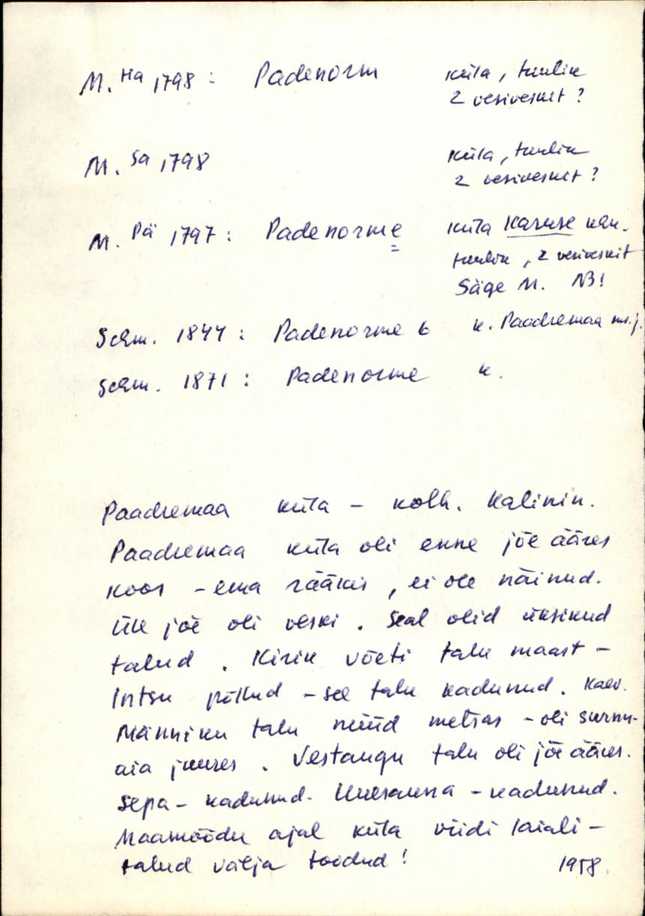 M. Ha 1798 : Padenorm küla, tuulik
2 vesiveskit ?
M. Sa 1798 küla, tuulik
2 vesiveskit ?
M. Pä 1797 : Padenorme küla Karuse
tuulik, 2 vesiveskit
Säge M. NB!
Schm. 1844 : Padenorme k. Paadremaa
Schm. 1871 : Padenorme k.
Paadremaa küla – kolh. Kalinin.
Paadremaa küla oli enne jõe ääres
koos – ema rääkis, ei ole näinud.
Üle jõe oli veski. Seal olid üksikud
talud. Kirik võeti talu maast –
Intsu põllud – see talu kadunud. Kaev.
Männiku talu nüüd metsas – oli surnu-
aia juures. Vestangu talu oli jõe ääres.
Sepa – kadunud. Uuesauna – kadunud.
Maamõõdu ajal küla viidi laiali –
talud välja toodud!
1958.